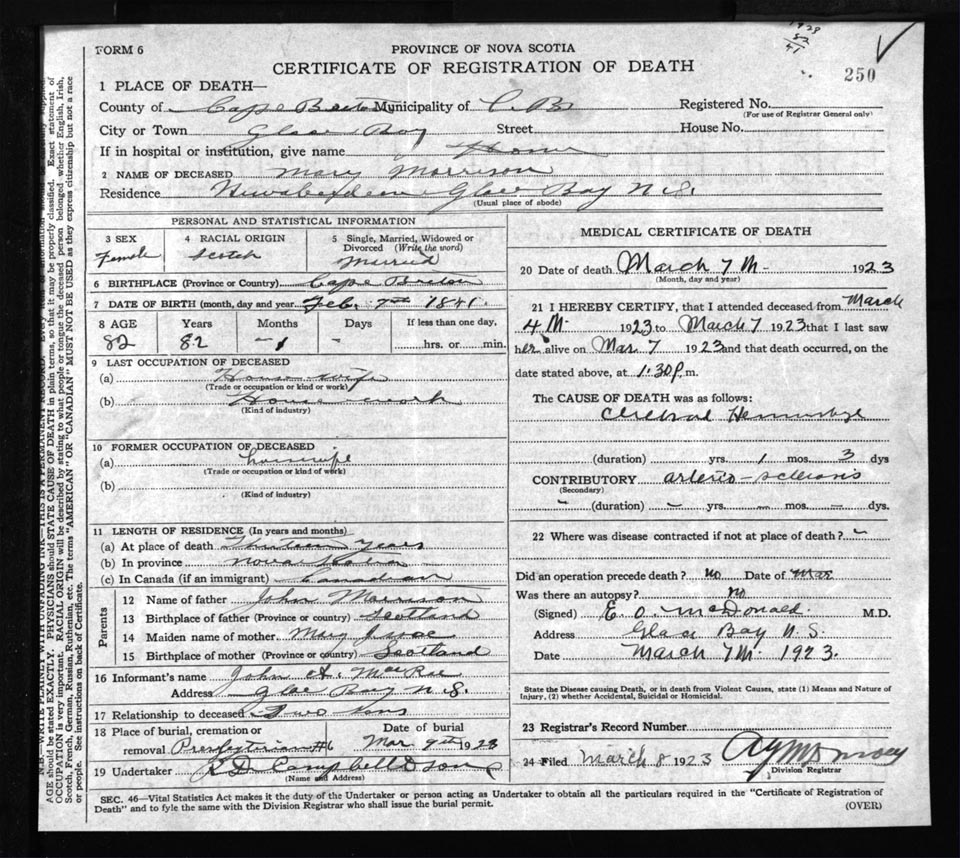 1923
82
41
FORM 6
PROVINCE OF NOVA SCOTIA
CERTIFICATE OF REGISTRATION OF DEATH
250
1 PLACE OF DEATH—
County of Cape Breton Municipality of C. B. Registered No.
(For use of Registrar General only)
City or Town Glace Bay Street House No.
If in hospital or institution, give name Home
2 NAME OF DECEASED Mary Morrison
Residence Newaberdeen Glace Bay N.S.
(Usual place of abode)
PERSONAL AND STATISTICAL INFORMATION
3 SEX
Female
4 RACIAL ORIGIN
Scotch
5 Single, Married, Widowed or Divorced (Write the word)
Married
6 BIRTHPLACE (Province or Country) Cape Breton
7 DATE OF BIRTH (month, day and year) Feb. 7th 1841.
8 AGE Years Months Days If less than one day,
82 82 -1 - hrs. or min.
9 LAST OCCUPATION OF DECEASED
(a) House wife
(Trade or occupation or kind or work)
(b) House work
(Kind of industry)
10 FORMER OCCUPATION OF DECEASED
(a) housewife
(Trade or occupation or kind of work)
(b)
(Kind of industry)
11 LENGTH OF RESIDENCE (In years and months)
(a) At place of death years
(b) In province Nova Scotia
(c) In Canada (if an immigrant) Canadian
Parents
12 Name of father John Morrison
13 Birthplace of father (Province or country) Scotland
14 Maiden name of mother Mary
15 Birthplace of mother (Province or country) Scotland
16 Informant's name John A. MacRae
Address Glace Bay N.S.
17 Relationship to deceased
18 Place of burial, cremation or removal Presbyterian #6
Date of burial
Mar 9th 1923
19 Undertaker R D Campbell & Sons
(Name and Address)
MEDICAL CERTIFICATE OF DEATH
20 Date of death March 7th 1923
(Month, day and year)
21 I HEREBY CERTIFY, that I attended deceased from March
4th 1923 to March 7 1923 that I last saw
her alive on Mar 7 1923 and that death occurred, on the
date stated above, at 1:30 p.m.
The CAUSE OF DEATH was as follows:
Cerebral Hemorrhage
(duration) yrs. mos. 3 dys
CONTRIBUTORY arterio-sclerosis
(Secondary)
(duration) yrs. mos. dys.
22 Where was disease contracted if not at place of death?
Did an operation precede death? no Date of
Was there an autopsy? no
(Signed) E. O. McDonald. M.D.
Address Glace Bay N.S.
Date March 7th. 1923.
State the Disease causing Death, or in death from Violent Causes, state (1) Means and Nature of
Injury, (2) whether Accidental, Suicidal or Homicidal.
23 Registrar's Record Number
24 Filed March 8 1923
Division Registrar
SEC. 46—Vital Statistics Act makes it the duty of the Undertaker or person acting as Undertaker to obtain all the particulars required in the "Certificate of Registration of
Death" and to fyle the same with the Division Registrar who shall issue the burial permit.
(OVER)
N.B.—WRITE PLAINLY WITH UNFADING INK—THIS IS A PERMANENT RECORD.
AGE should be stated EXACTLY. PHYSICIANS should STATE CAUSE OF DEATH in plain terms, so that it may be properly classified. Exact statement of
OCCUPATION is very important. RACIAL ORIGIN will be described by stating to what people or tongue the deceased person belonged whether English, Irish,
Scotch, French, German, Russian, Ruthenian, etc. The terms "AMERICAN" OR "CANADIAN" MUST NOT BE USED as they express citizenship but not a race
or people. See instructions on back of Certificate.